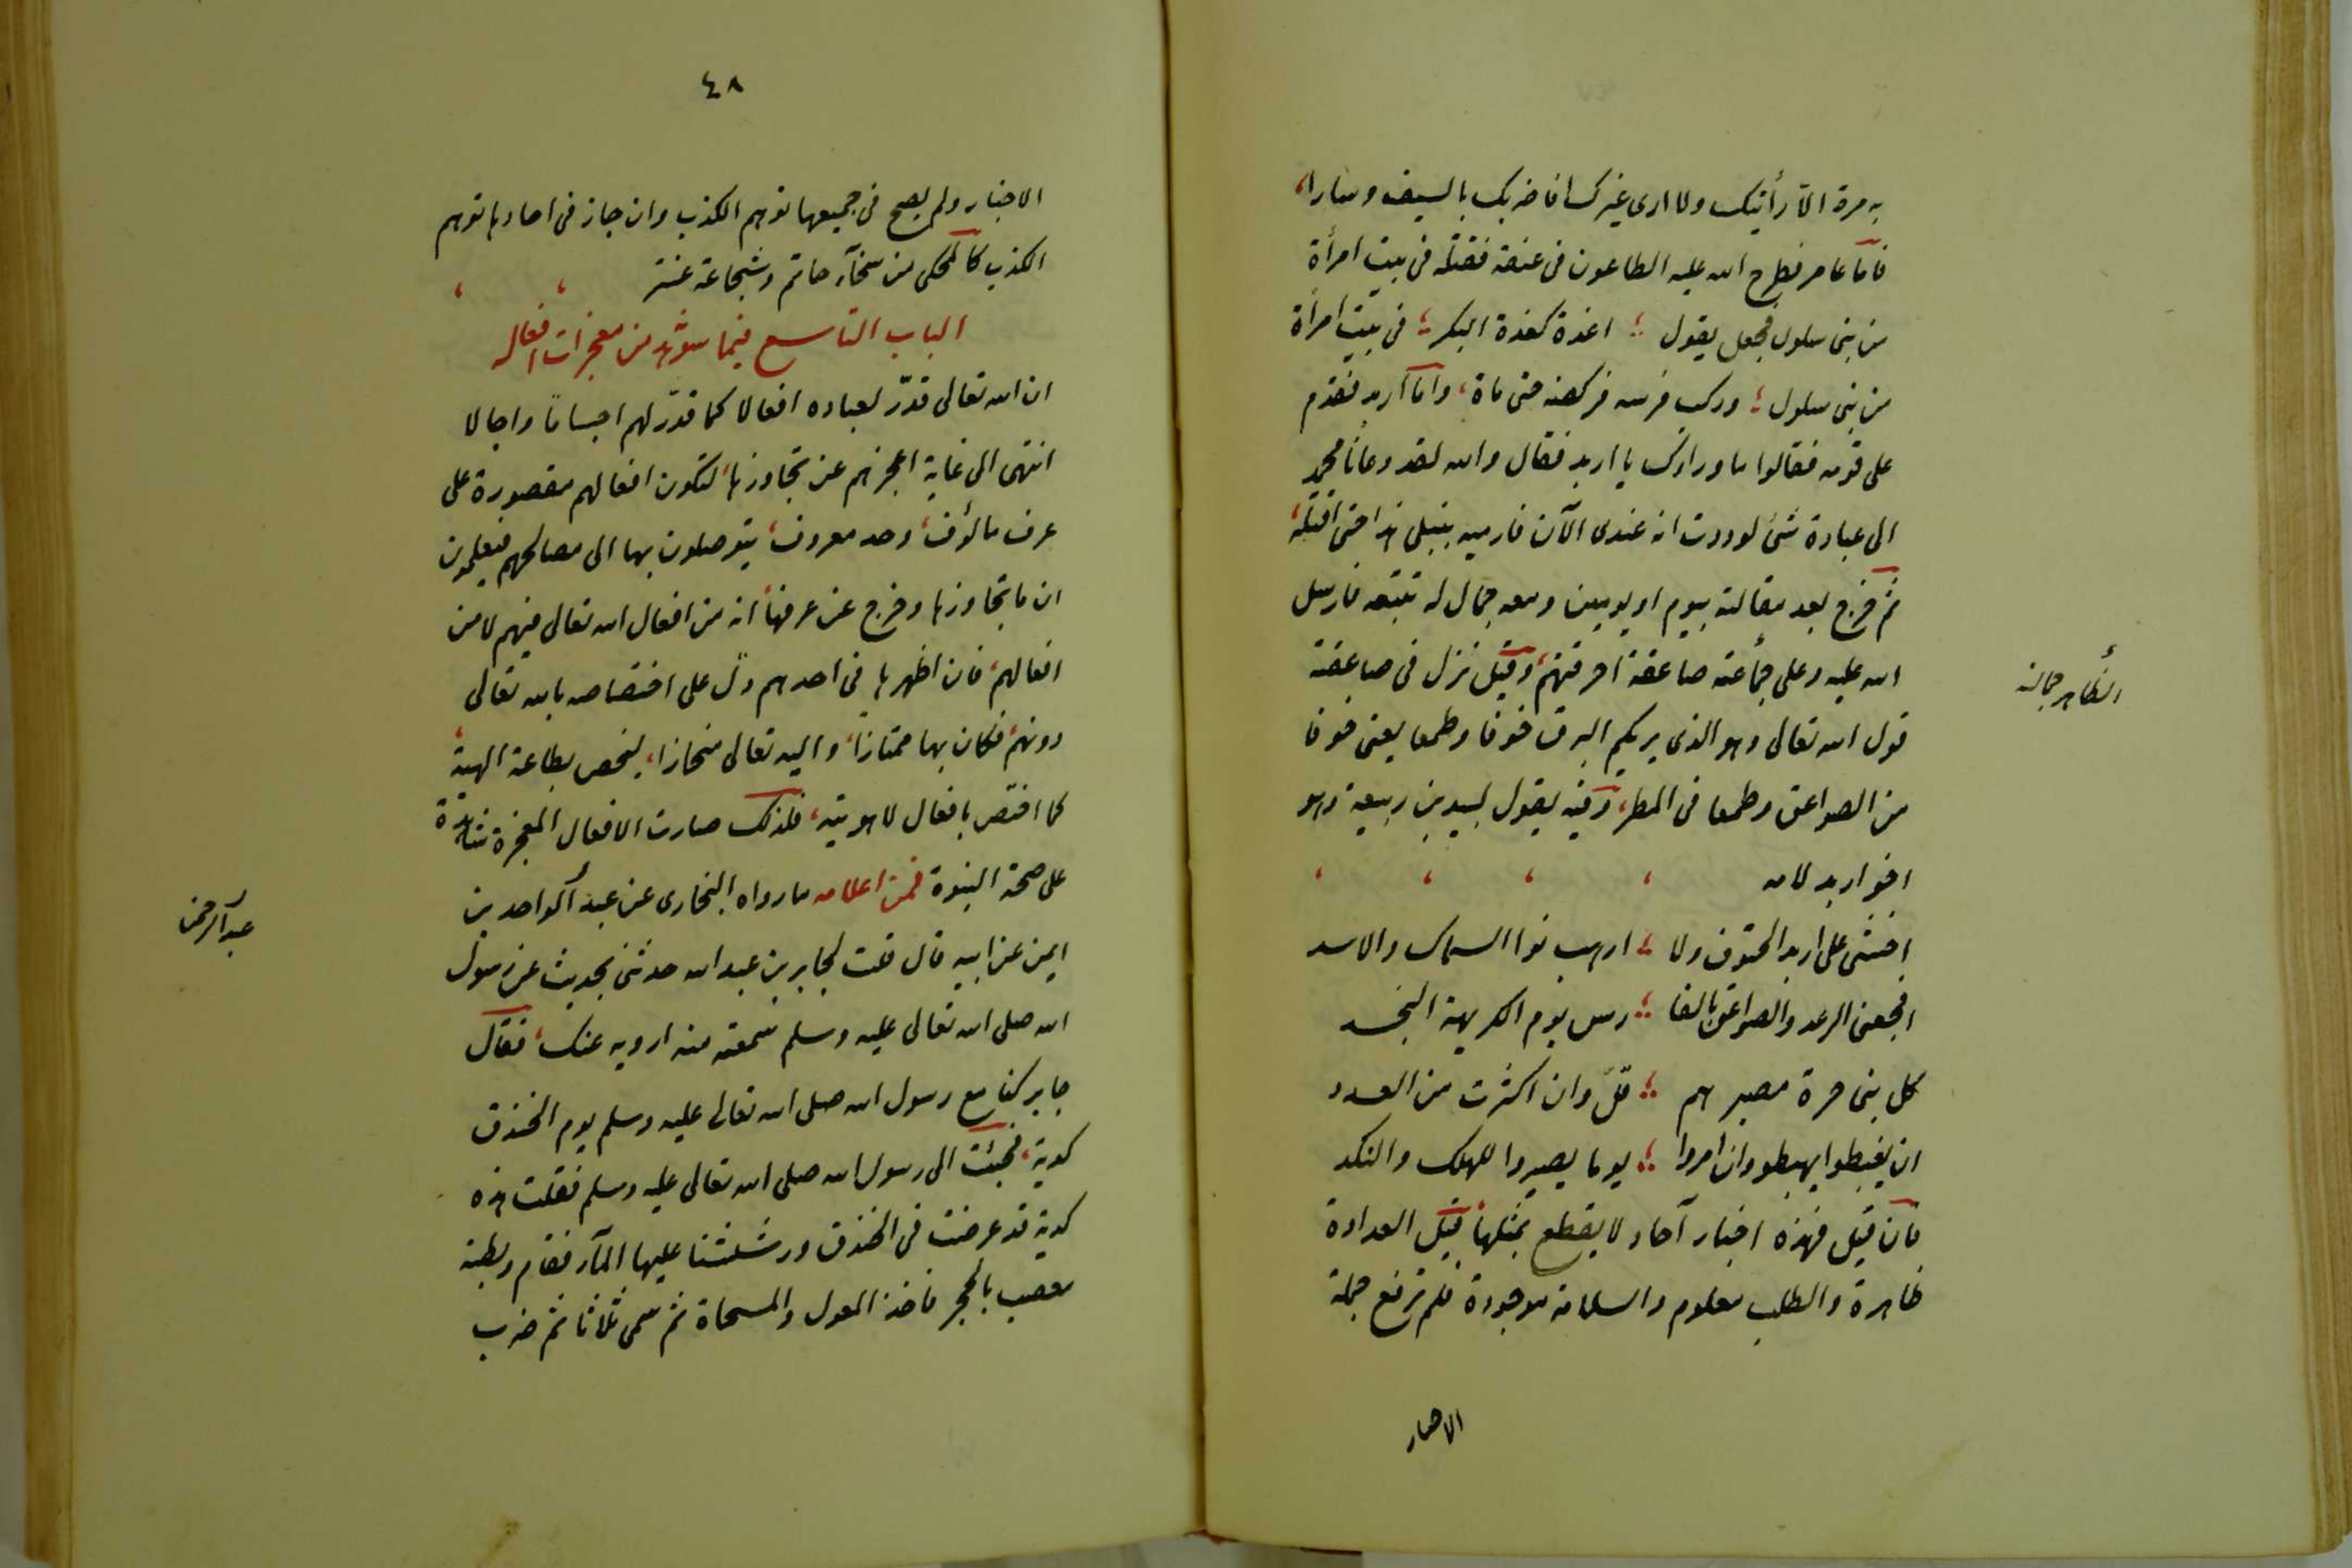 به مرة الا رأيتك ولا ارى غيرك افاضربك بالسيف وسارا،
فاما عامر فطرح الله عليه الطاعون فى عنقه فقتله فى بيت امرأة
من بنى سلول فجعل يقول ؛ اغدة كغدة البكر ؛ فى بيت امرأة
من بنى سلول ؛ وركب فرسه فركضه حتى ماة، واما اربد فقدم
على قومه فقالوا ما وراءك يا اربد فقال والله لقد دعانا محمد
الى عبادة شئ لوددت انه عندى الآن فارميه بنبلى هذا حتى اقتله،
ثم خرج بعد مقالته بيوم او يومين ومعه جمال له تتبعه فارسل
الله عليه وعلى جمأعته صاعقة احرقتهم، وقيل نزل فى صاعقة
الظاهر جماله
قول الله تعالى وهو الذى يريكم البرق خوفا وطمعا يعنى خوفا
من الصواعق وطمعا فى المطر، وفيه يقول لبيد بن ربيعة وهو
اخو اربد لامه
اخشى على اربد الحتوف ولا ؛ ارهب نوا السماك والاسد
افجعنى الرعد والصواعق بالفا ؛ رس يوم الكريهة النجد
كل بنى حرة مصيرهم ؛ قل وان اكثرت من العدد
ان يغبطوا يهبطو وان امروا ؛ يوما يصيروا للهلك والنكد
فان قيل فهذه اخبار آحاد لا يقطع بمثلها، قيل العداوة
ظاهرة والطلب معلوم والسلامة موجودة فلم ترفع جملة
الاخبار
٤٨
الاخبار ولم يصح فى جميعها توهم الكذب وان جاز فى احادها توهم
الكذب كالمحكى من سخآء حاتم وشجاعة عنتر
الباب التاسع فيما شوهد من معجزات افعاله
ان الله تعالى قدّر لعباده افعالا كما قدّر لهم اجساما واجالا
انتهى الى غاية اعجزهم عن تجاوزها، لتكون افعالهم مقصورة على
عرف مالوف، وحد معروف، يتوصلون بها الى مصالحهم فيعلمون
ان ما تجاوزها وخرج عن عرفها، انه من افعال الله تعالى فيهم لا من
افعالهم، فان اظهرها فى احدهم دلّ على اختصاصه بالله تعالى
دونهم، فكان بها ممتازا، واليه تعالى منحازا، ليخص بطاعة الهية،
كما اختص بافعال لاهوتية، فلذلك صارت الافعال المعجزة شاهدة
على صحة النبوة فمن اعلامه ما رواه البخارى عن عبد الواحد بن
عبد الرحمن
ايمن عن ابيه قال قلت لجابر بن عبد الله حدثنى بحديث عن رسول
الله صلى الله تعالى عليه وسلم سمعته منه ارويه عنك، فقال
جابر كنا مع رسول الله صلى الله تعالى عليه وسلم يوم الخندق
كدية، فجئت الى رسول الله صلى الله تعالى عليه وسلم فقلت هذه
كدية قد عرضت فى الخندق ورششنا عليها المآء فقام وبطنه
معصب بالحجر فاخذ المعول والمسحاة ثم سمى ثلاثا ثم ضرب